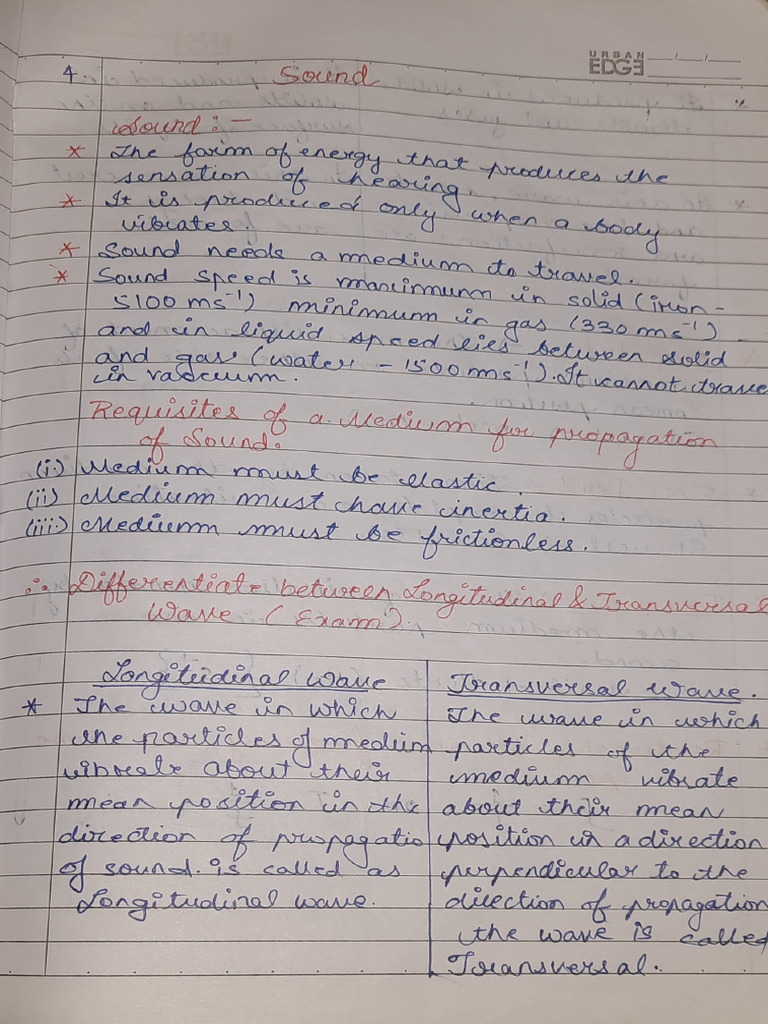 URBAN
EDGE __/__/__
4. Sound
Sound : -
* The form of energy that produces the
sensation of hearing.
* It is produced only when a body
vibrates.
* Sound needs a medium to travel.
* Sound speed is maximum in solid (iron -
5100 ms⁻¹) minimum in gas (330 ms⁻¹)
and in liquid speed lies between solid
and gas (water - 1500 ms⁻¹). It cannot trave
in vaccum.
Requisites of a Medium for propagation
of Sound.
(i.) Medium must be elastic.
(ii) Medium must have inertia.
(iii.) Medium must be frictionless.
∴ Differentiate between Longitudinal & Transversal
Wave (Exam).
Longitudinal wave
* The wave in which
the particles of medium
vibrate about their
mean position in the
direction of propagatio
of sound. is called as
Longitudinal wave.
Transversal wave.
The wave in which
particles of the
medium vibrate
about their mean
position in a direction
perpendicular to the
direction of propagation
the wave is called
Transversal.